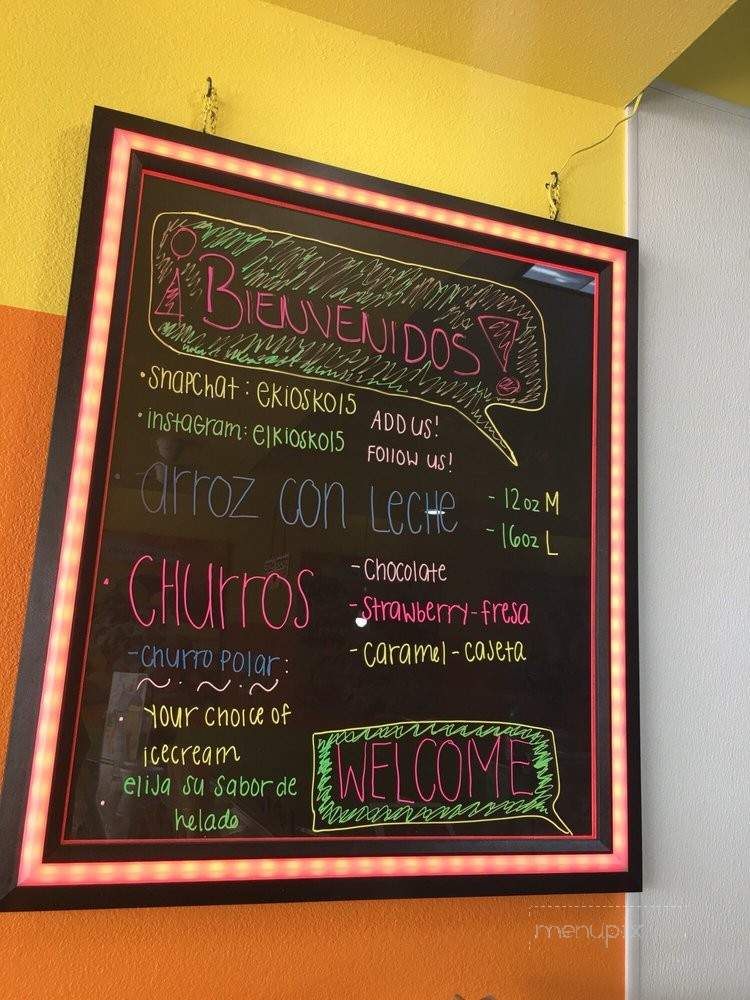 ¡BIENVENIDOS!
• snapchat: ekiosko15
• instagram: elkiosko15
ADD US!
FOLLOW US!
• arroz con LECHE
- 12oz M
- 16oz L
• CHUrrOS
- Chocolate
- Strawberry - fresa
- caramel - cajeta
- churro polar:
• your choice of
icecream
• elija su sabor de
helado
WELCOME
menupix